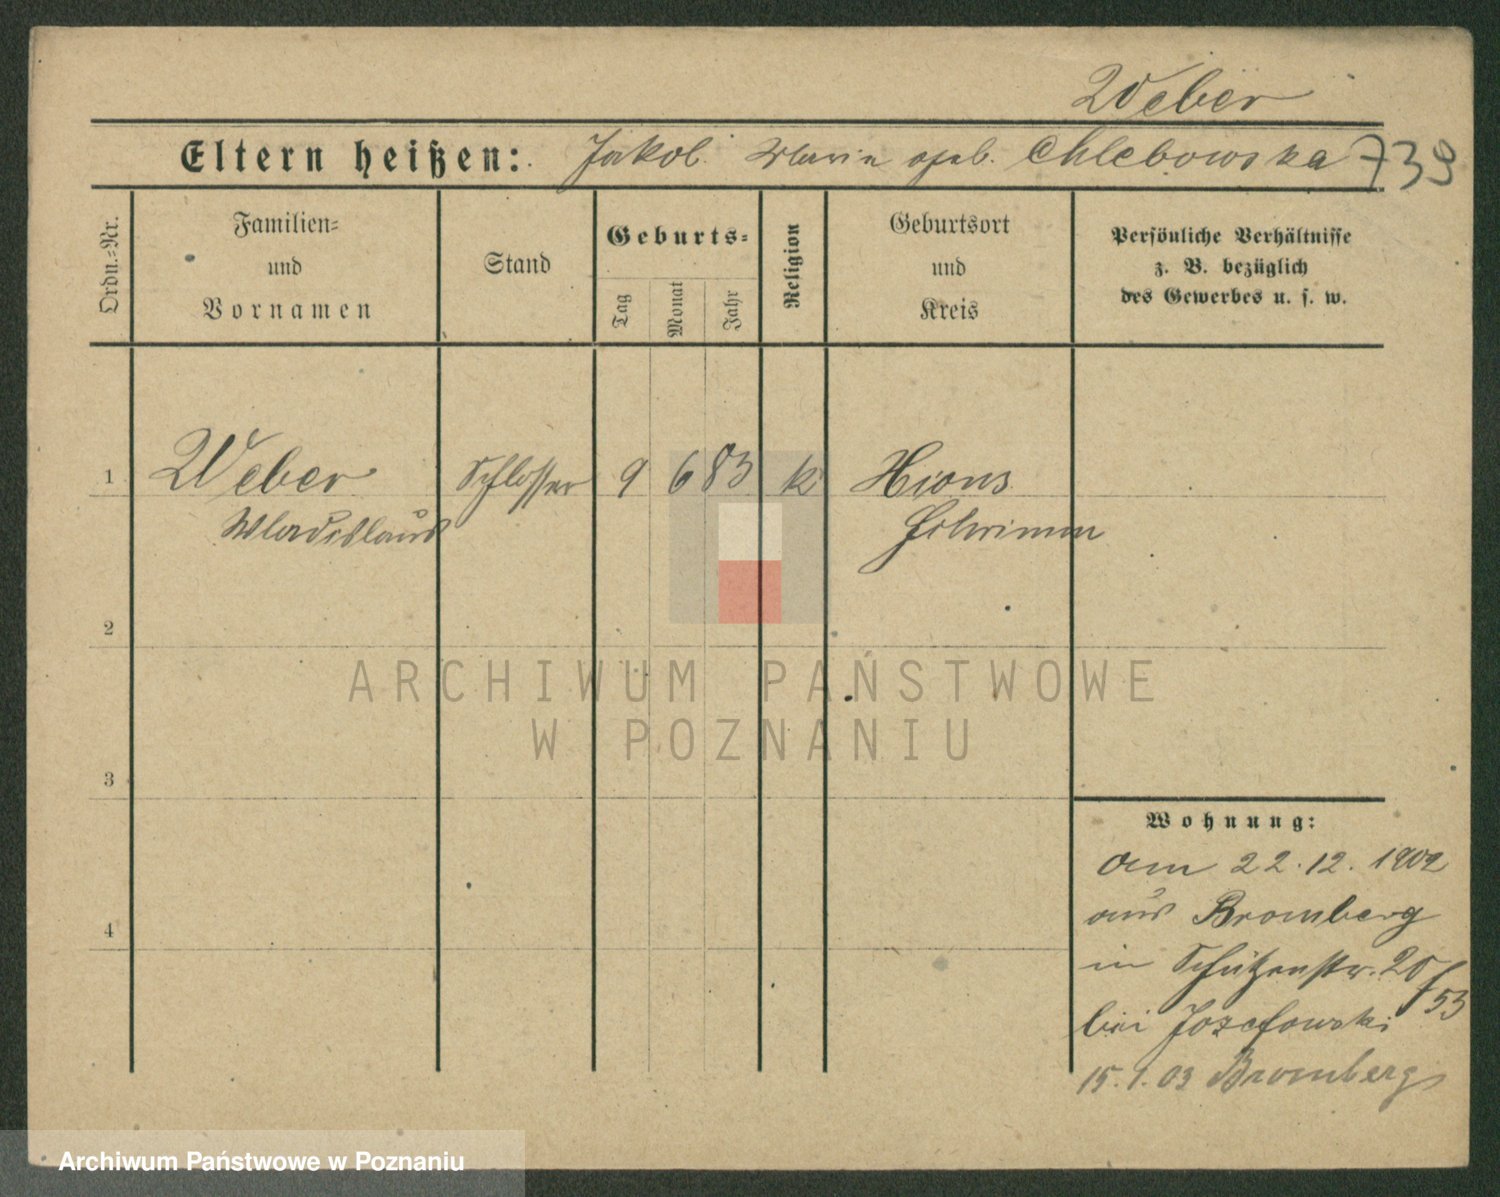 Weber
Eltern heißen: Jakob Maria geb. Chlebowska 739
Ordn.-Nr.
Familien-
und
Vornamen
Stand
Geburts-
Tag
Monat
Jahr
Religion
Geburtsort
und
Kreis
Persönliche Verhältnisse
z. B. bezüglich
des Gewerbes u. s. w.
1 Weber Schlosser 9 6 83 k Xions
Wladislaus Schrimm
2
3
4
ARCHIWUM PAŃSTWOWE
W POZNANIU
Wohnung:
am 22.12.1902
aus Bromberg
in Schützenstr. 20/53
bei Jozefowski
15.1.03 Bromberg
Archiwum Państwowe w Poznaniu